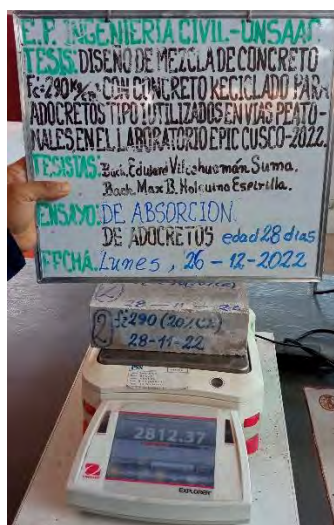 E.P. INGENIERÍA CIVIL-UNSAAC
TESIS: DISEÑO DE MEZCLA DE CONCRETO
F'c=290 kg/cm² CON CONCRETO RECICLADO PARA
ADOCRETOS TIPO I UTILIZADOS EN VIAS PEATO-
NALES EN EL LABORATORIO EPIC CUSCO-2022.
TESISTAS: Bach. Eduard Vilcahuamán Suma.
Bach. Max B. Holguino Espirilla.
ENSAYO: DE ABSORCION
DE ADOCRETOS edad 28 dias
FECHA: Lunes, 26-12-2022
2
f'c 290 (20%
28-11-22
2812.37
OHAUS
EXPLORER